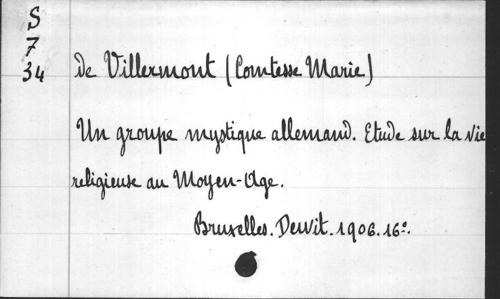 S
7
34
de Villermont (Comtesse Marie)
Un groupe mystique allemand. Etude sur la vie
religieuse au Moyen-Age.
Bruxelles. Dewit. 1906. 16º.